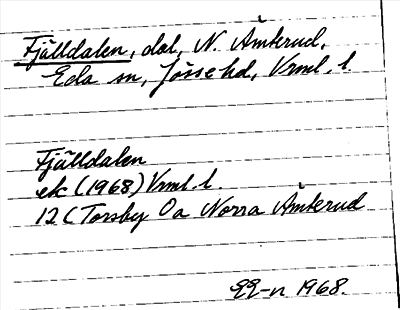 Fjälldalen, dal, N. Åmterud,
Eda sn, Jösse hd, Vrml. l.
Fjälldalen
ek (1968) Vrml. l.
12 C Torsby 0 a Norra Åmterud
1968.